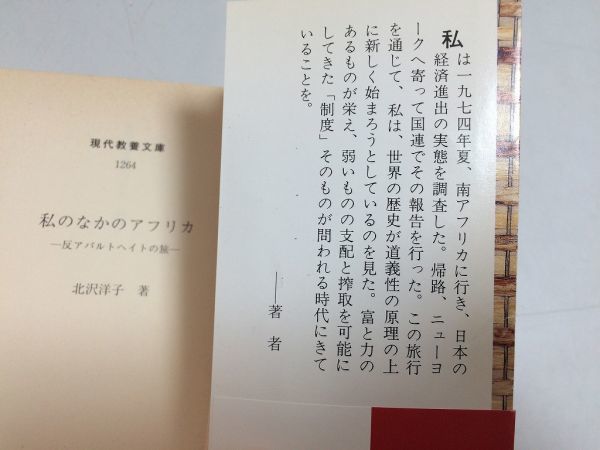 現代教養文庫
1264
私のなかのアフリカ
―反アパルトヘイトの旅―
北沢洋子 著
私は一九七四年夏、南アフリカに行き、日本の
経済進出の実態を調査した。帰路、ニューヨ
ークへ寄って国連でその報告を行った。この旅行
を通じて、私は、世界の歴史が道義性の原理の上
に新しく始まろうとしているのを見た。富と力の
あるものが栄え、弱いものの支配と搾取を可能に
してきた「制度」そのものが問われる時代にきて
いることを。
―著者